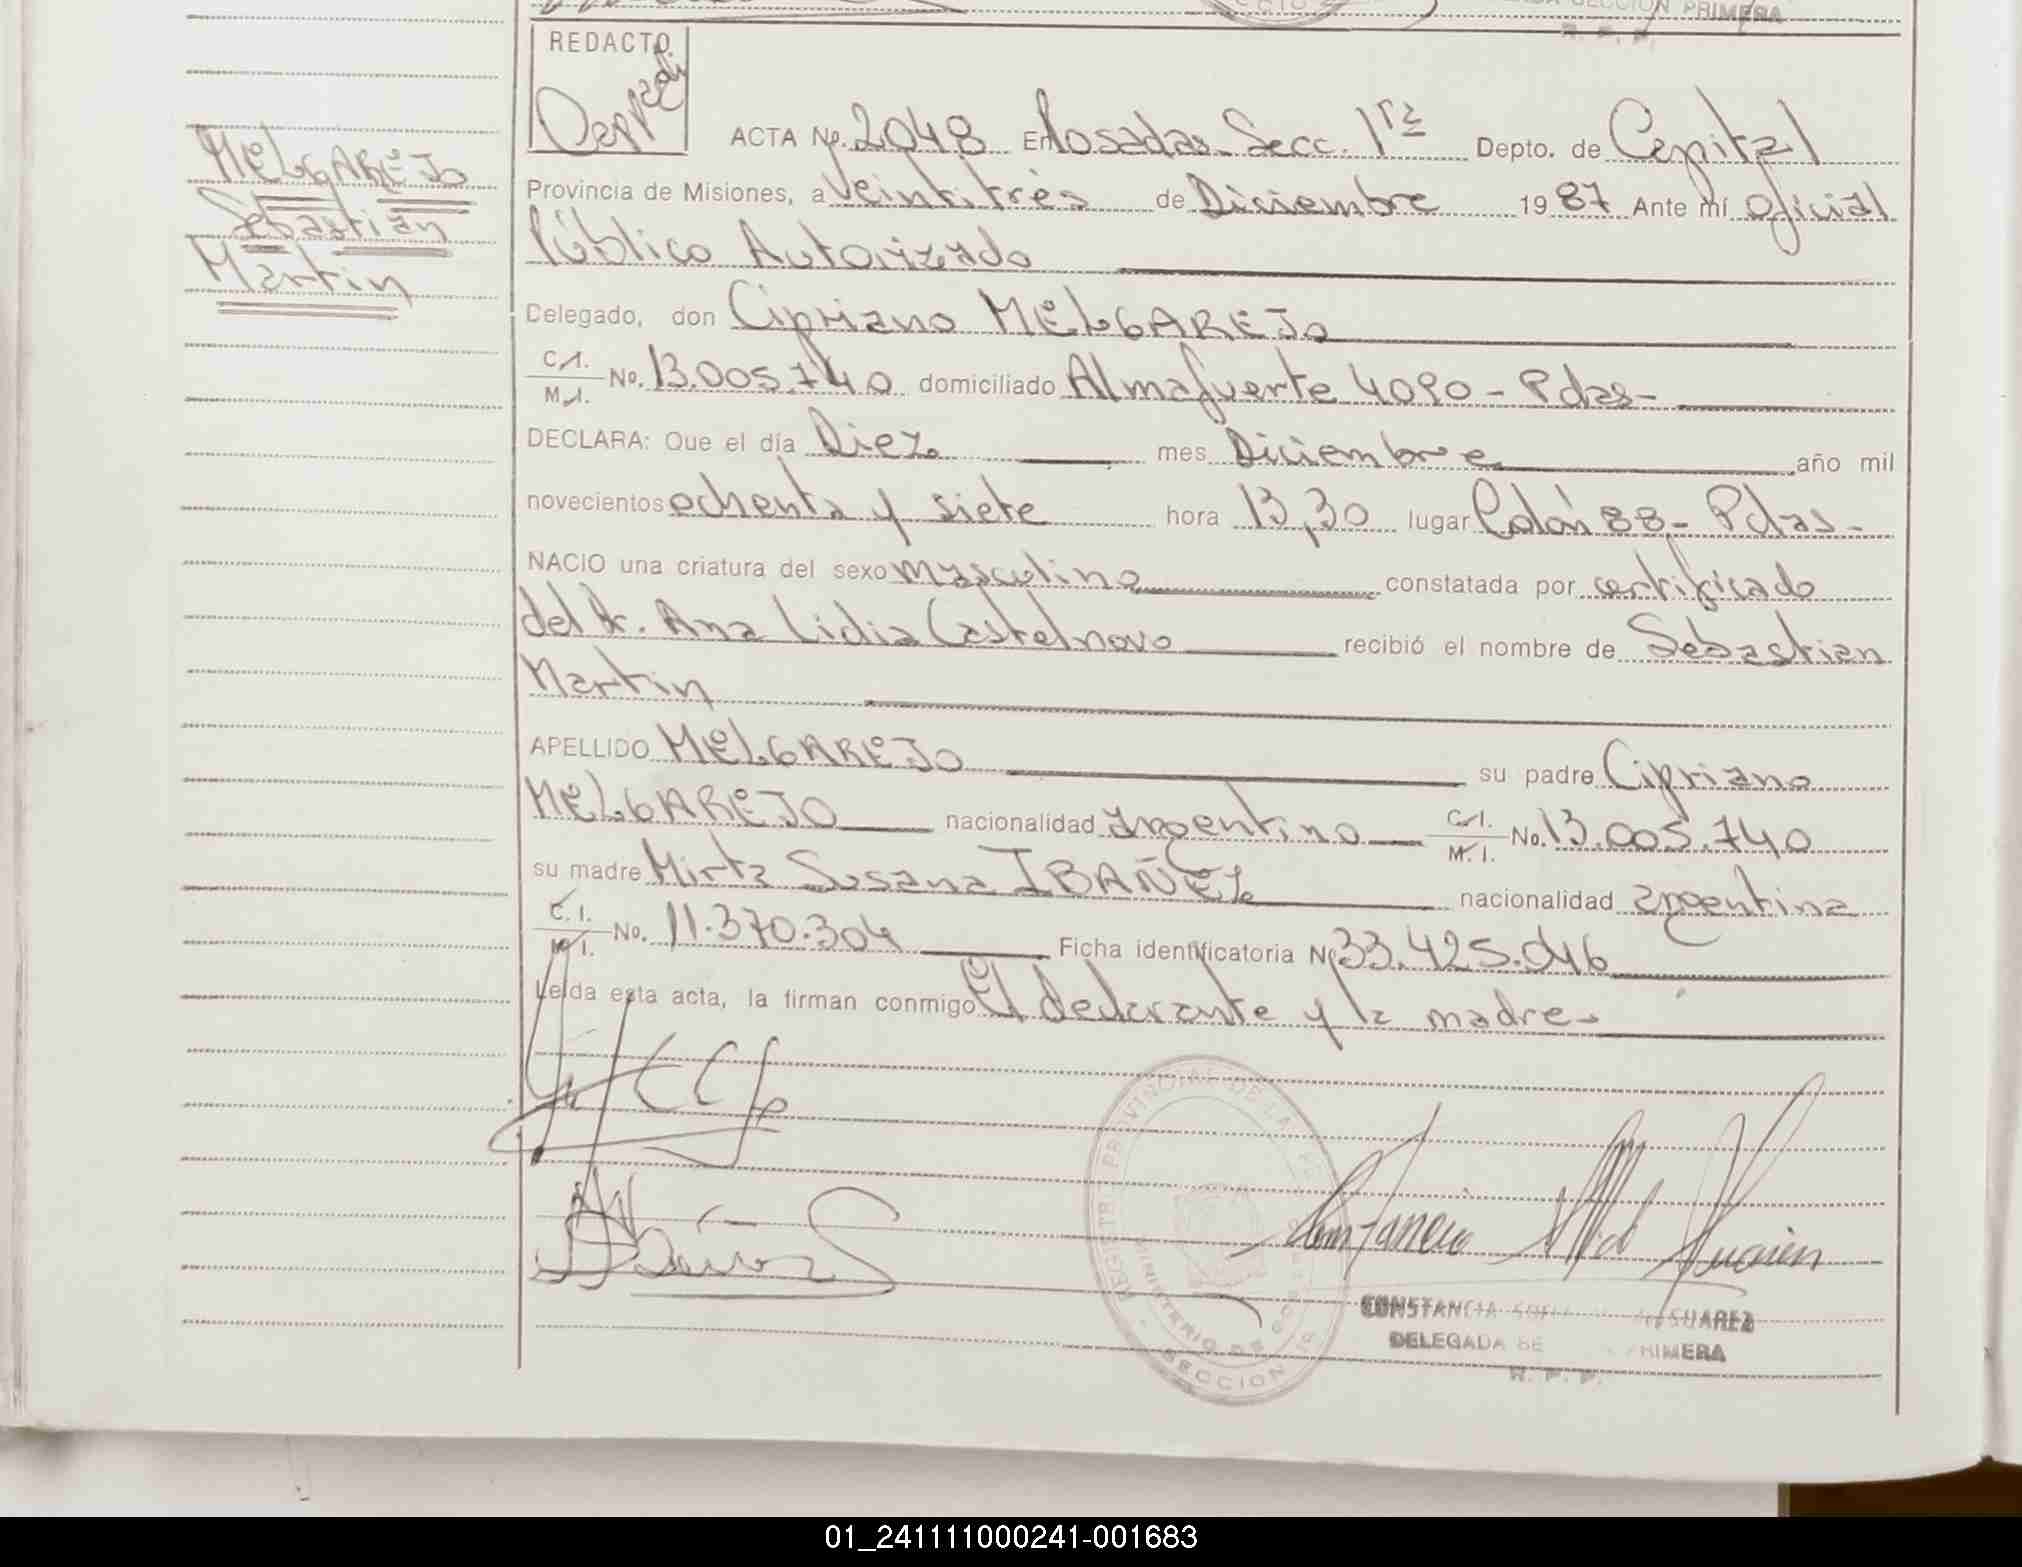 SECCION PRIMERA
R. P. P.
REDACTO
ACTA No. 2048 En Posadas Secc. 1ra Depto. de Capital
MELGAREJO
Sebastián
Martin
Provincia de Misiones, a Veintitrés de Diciembre 1987 Ante mí Oficial
Público Autorizado
Delegado, don Cipriano MELGAREJO
C.I. M.I. No. 13.005.740 domiciliado Almafuerte 4090 - Pdas-
DECLARA: Que el día Diez mes Diciembre año mil
novecientos ochenta y siete hora 13,30 lugar Colón 88 - Pdas-
NACIO una criatura del sexo masculino constatada por certificado
del Dr. Ana Lidia Castelnovo recibió el nombre de Sebastian
Martin
APELLIDO MELGAREJO su padre Cipriano
MELGAREJO nacionalidad argentino C.I. M.I. No. 13.005.740
su madre Mirta Susana IBAÑEZ nacionalidad argentina
C.I. M.I. No. 11.370.304 Ficha identificatoria No 33.425.046
Leída esta acta, la firman conmigo El declarante y la madre-
REGISTRO PROVINCIAL DE LA
MINISTERIO DE GOBIERNO
SECCION 1a
CONSTANCIA SUAREZ
DELEGADA PRIMERA
R. P. P.
01_241111000241-001683